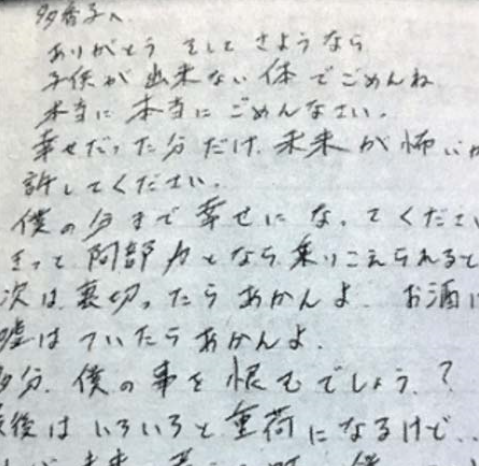 多香子へ
ありがとう そして さようなら
子供が 出来ない 体 で ごめんね
本当に 本当に ごめんなさい。
幸せだった分だけ 未来 が 怖いか
許してください。
僕の 分まで 幸せに なってくださ
きっと 阿部 力 となら 乗りこえられると
次は 裏切ったら あかんよ お酒に
嘘は ついたら あかんよ。
多分、僕の 事を 恨むでしょう?
最後は いろいろと 重荷 になるけど..